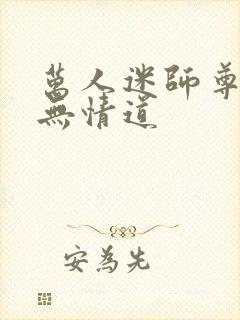 萬人迷師尊
無情道
安為先